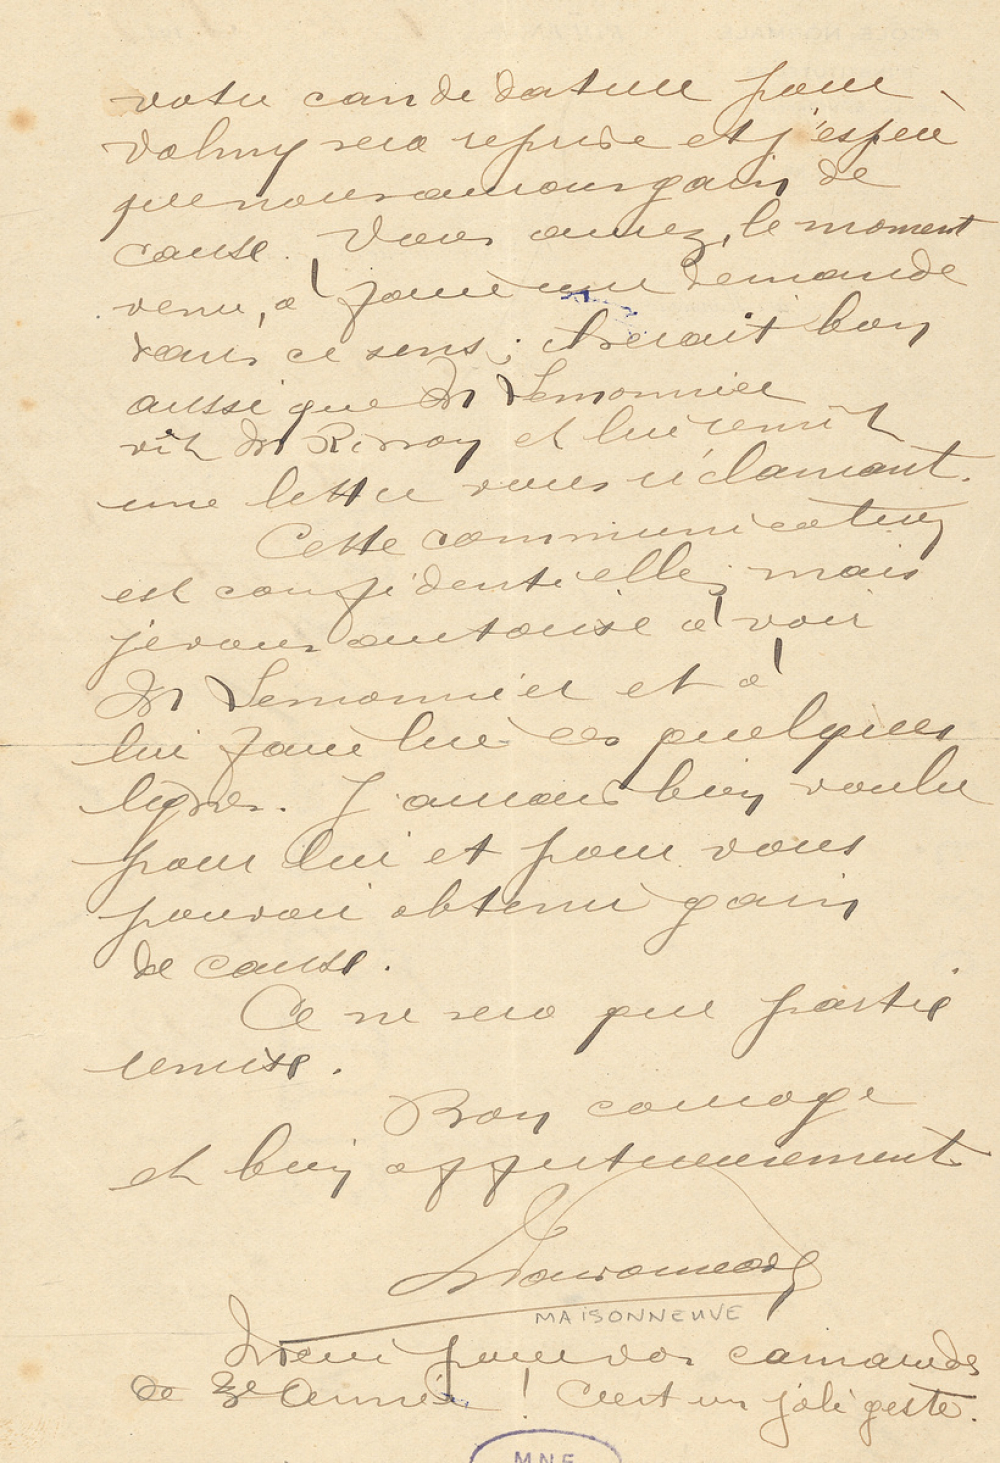 votre candidature pour
Valmy sera reprise et j'espère
que nous aurons gain de
cause. Vous aurez, le moment
venu, à faire une demande
dans ce sens ; il serait bon
aussi que Mr Lemonnier
vît Mr et lui remît
une lettre vous réclamant.
Cette communication
est confidentielle ; mais
je vous autorise à voir
Mr Lemonnier et à
lui faire lire ces quelques
lignes. J'aurais bien voulu
pour lui et pour vous
pouvoir obtenir gain
de cause.
Ce ne sera que partie
remise.
Bon courage
et bien affectueusement
MAISONNEUVE
Merci pour vos camarades
de 3e Année ! C'est un joli geste.
MNE